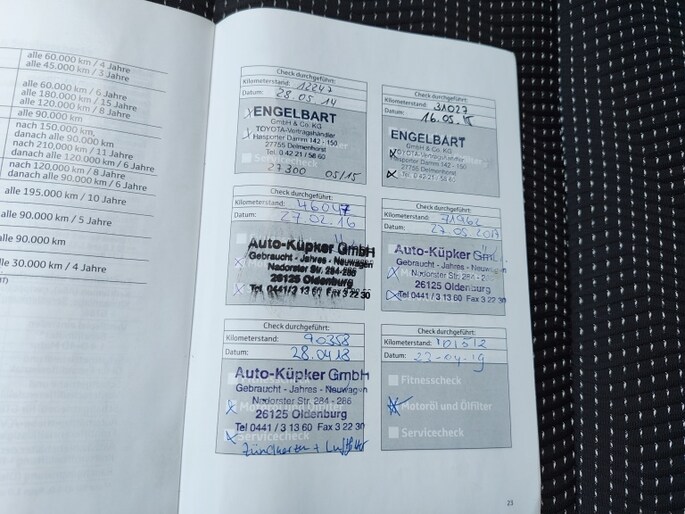 alle 60.000 km / 4 Jahre
alle 45.000 km / 3 Jahre
alle 60.000 km / 6 Jahre
alle 180.000 km / 15 Jahre
alle 120.000 km / 8 Jahre
alle 90.000 km
nach 150.000 km,
danach alle 90.000 km
nach 210.000 km / 11 Jahre
danach alle 120.000 km / 6 Jahre
nach 120.000 km / 8 Jahre
danach alle 90.000 km / 6 Jahre
alle 195.000 km / 10 Jahre
alle 90.000 km / 5 Jahre
alle 90.000 km
alle 30.000 km / 4 Jahre
Check durchgeführt:
Kilometerstand: 12247
Datum: 28.05.14
ENGELBART
GmbH & Co. KG
TOYOTA-Vertragshändler
Hasporter Damm 142 - 150
27755 Delmenhorst
Tel. 0 42 21 / 58 60
Servicecheck
27300 05/15
Check durchgeführt:
Kilometerstand: 31027
Datum: 16.05.15
ENGELBART
GmbH & Co. KG
TOYOTA-Vertragshändler
Hasporter Damm 142 - 150
27755 Delmenhorst
Tel. 0 42 21 / 58 60
Check durchgeführt:
Kilometerstand: 46047
Datum: 27.02.16
Auto-Küpker GmbH
Gebraucht - Jahres - Neuwagen
Nadorster Str. 284-286
26125 Oldenburg
Tel. 0441/3 13 60 Fax 3 22 30
Check durchgeführt:
Kilometerstand: 71962
Datum: 27.05.2017
Auto-Küpker GmbH
Gebraucht - Jahres - Neuwagen
Nadorster Str. 284 - 286
26125 Oldenburg
Tel 0441 / 3 13 60 Fax 3 22 30
Check durchgeführt:
Kilometerstand: 90358
Datum: 28.04.18
Auto-Küpker GmbH
Gebraucht - Jahres - Neuwagen
Nadorster Str. 284 - 286
Motoröl und Ölfilter
26125 Oldenburg
Tel 0441 / 3 13 60 Fax 3 22 30
Zündkerzen + Luftfilter
Check durchgeführt:
Kilometerstand: 101512
Datum: 23-04-19
Fitnesscheck
Motoröl und Ölfilter
Servicecheck
23